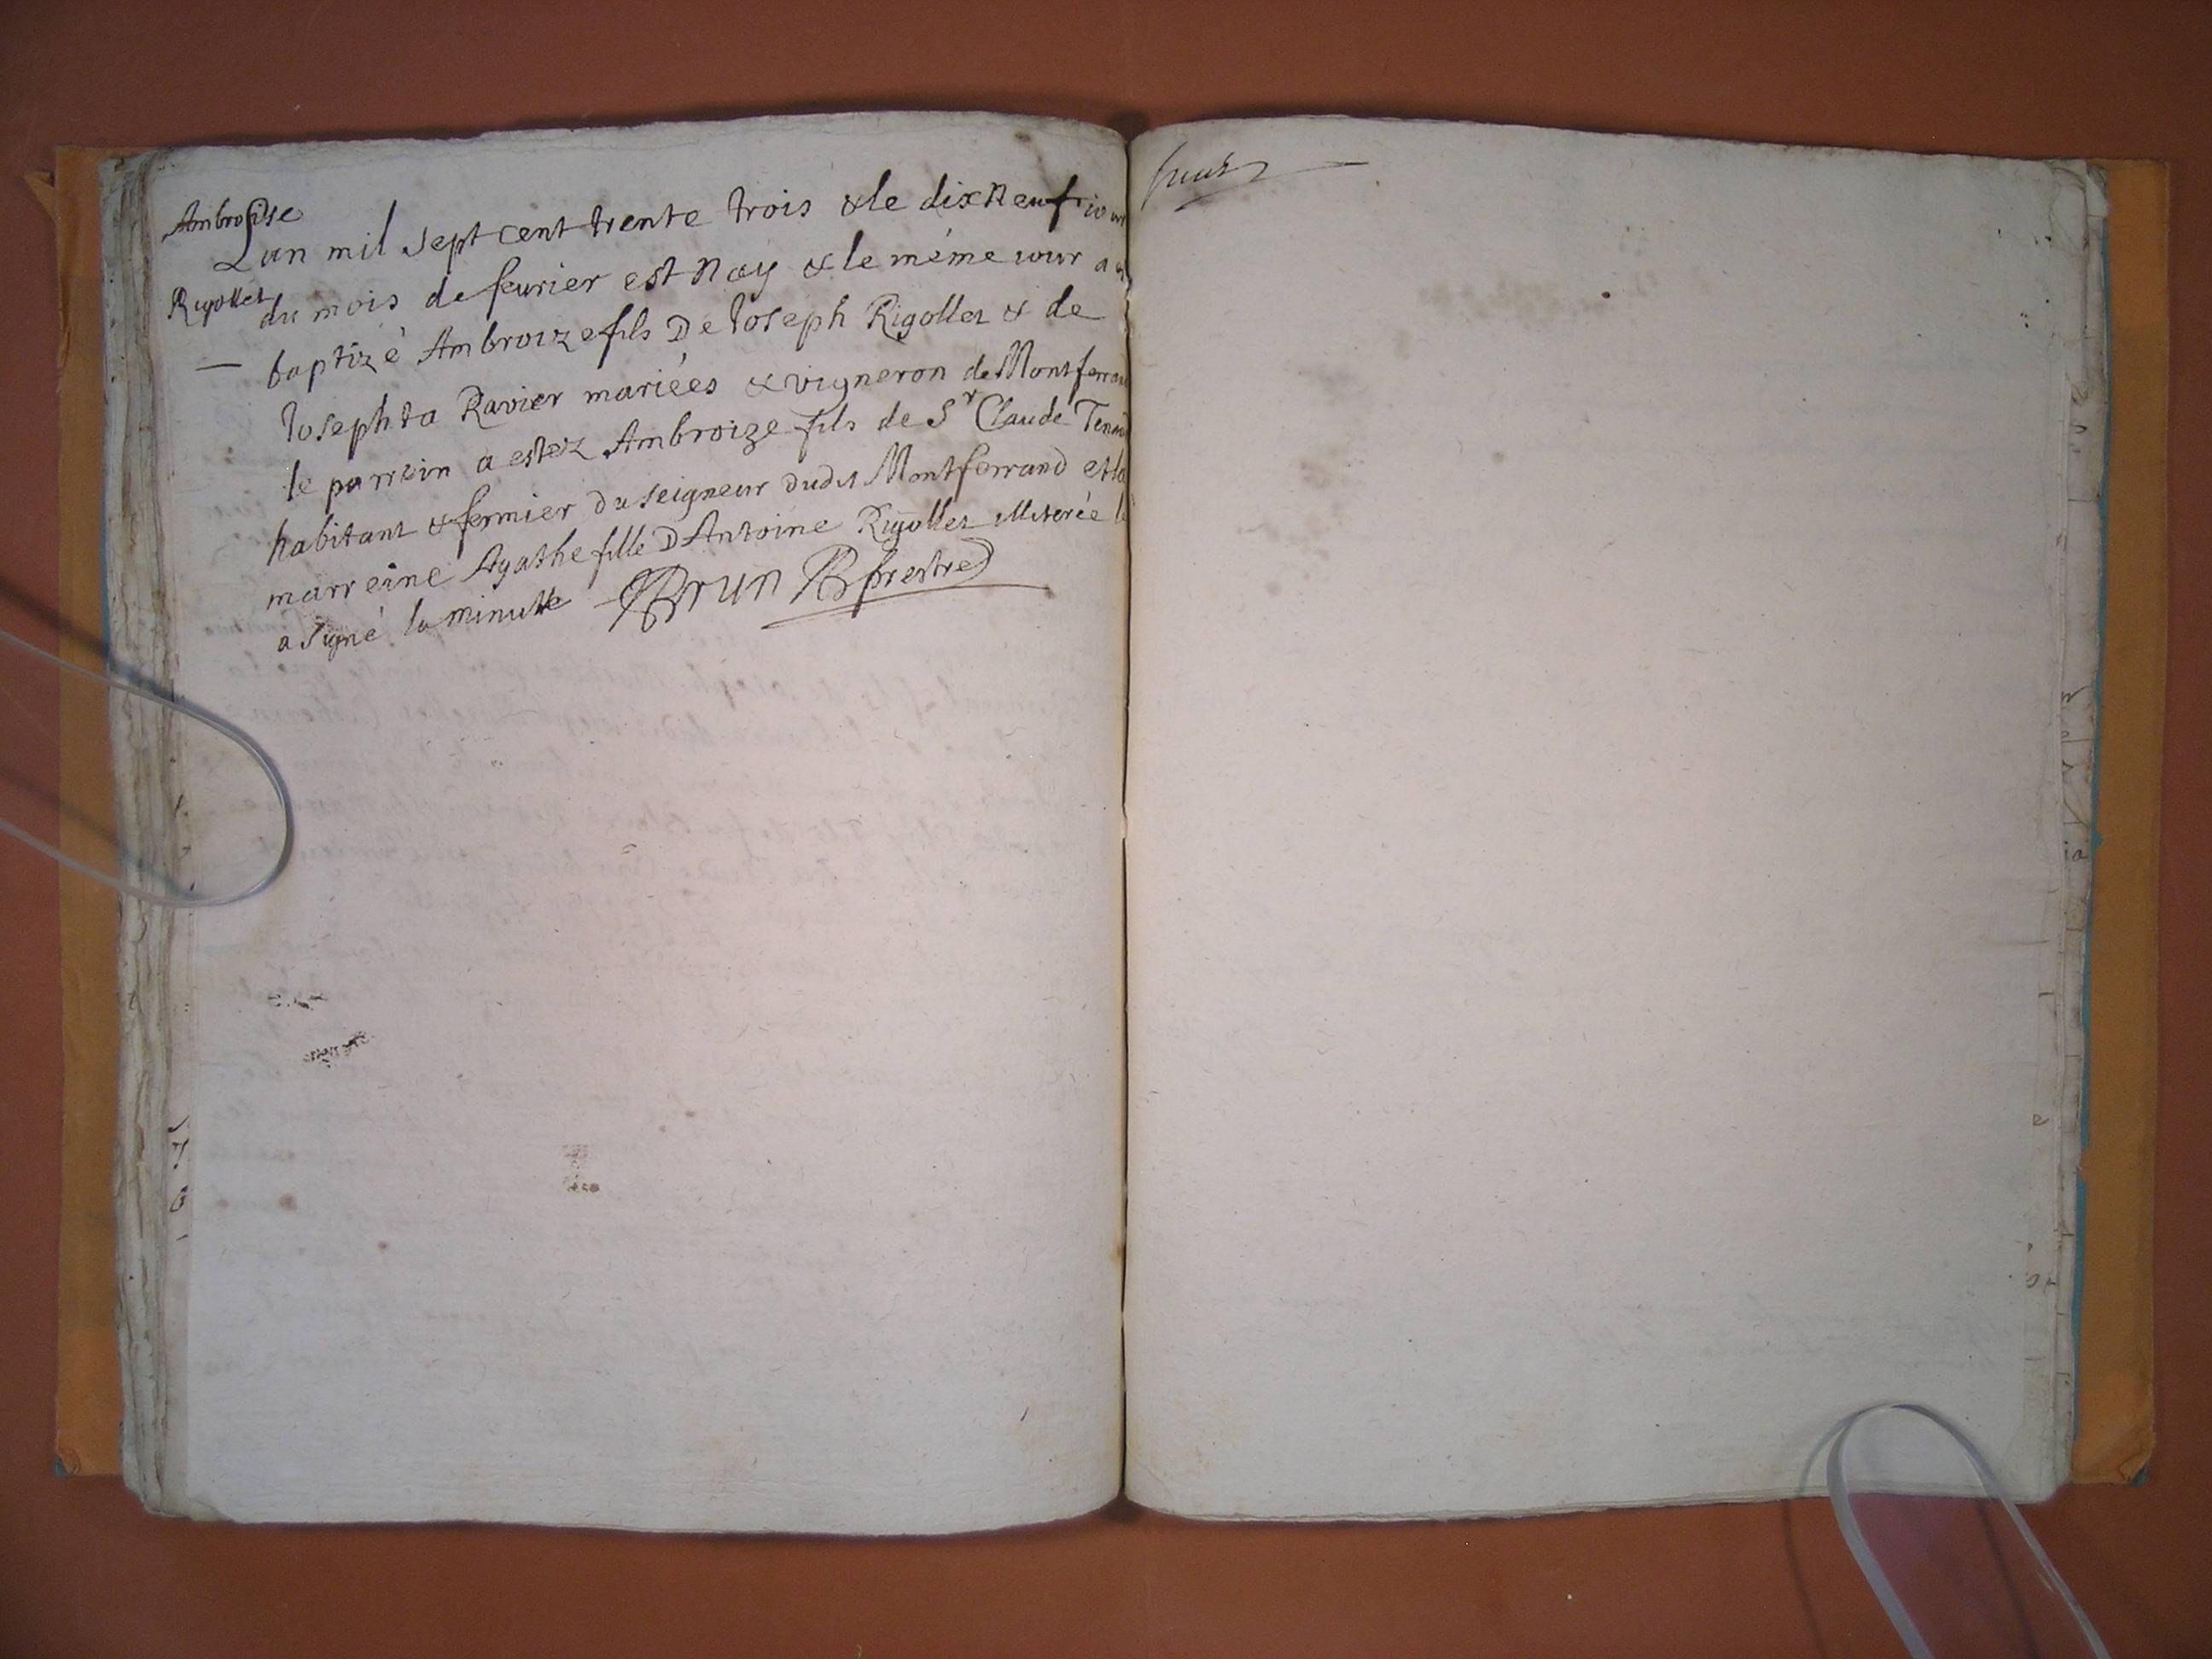 Ambroise
Rigollet
Lan mil sept cent trente trois & le dix neuf iour
du mois de feurier est nay & le méme iour a
baptizé Ambroize fils De Ioseph Rigollet & de
Iosephta Ravier mariées & vigneron de Montferrand
le parrein a estez Ambroize fils de Sr Claude
habitant & fermier du seigneur dudit Montferrand et la
marreine Agathe fille D Antoine Rigollet illiterée le
a signé la minutte JBrun prestre